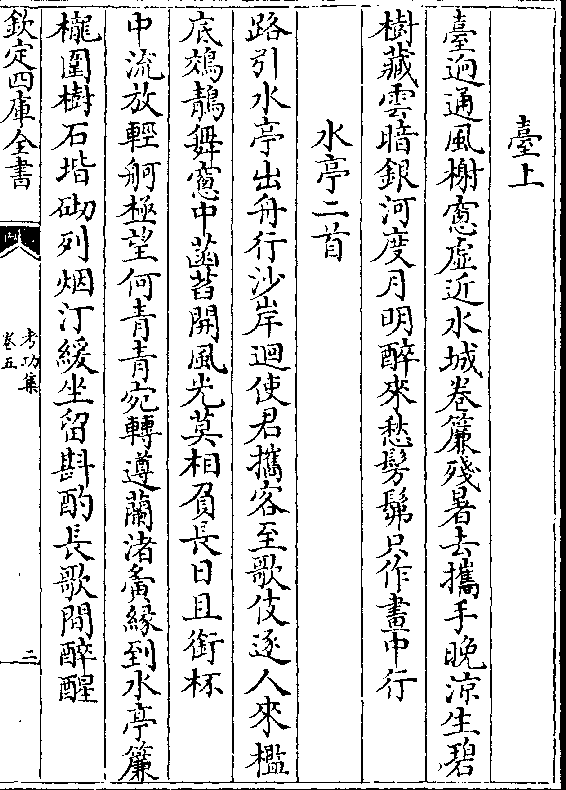 臺上
臺逈通風榭窻虛近水城卷簾殘暑去攜手晚涼生碧
樹藏雲暗銀河度月明醉來愁髣髴只作畫中行
水亭二首
路引水亭出舟行沙岸迴使君攜客至歌伎逐人來檻
底䴔鶄舞窻中菡萏開風光莫相負長日且銜杯
中流放輕舸極望何青青宛轉遵蘭渚夤緣到水亭簾
櫳圍樹石堦砌列烟汀緩坐留斟酌長歌間醉醒
欽定四庫全書
考功集
卷五
二